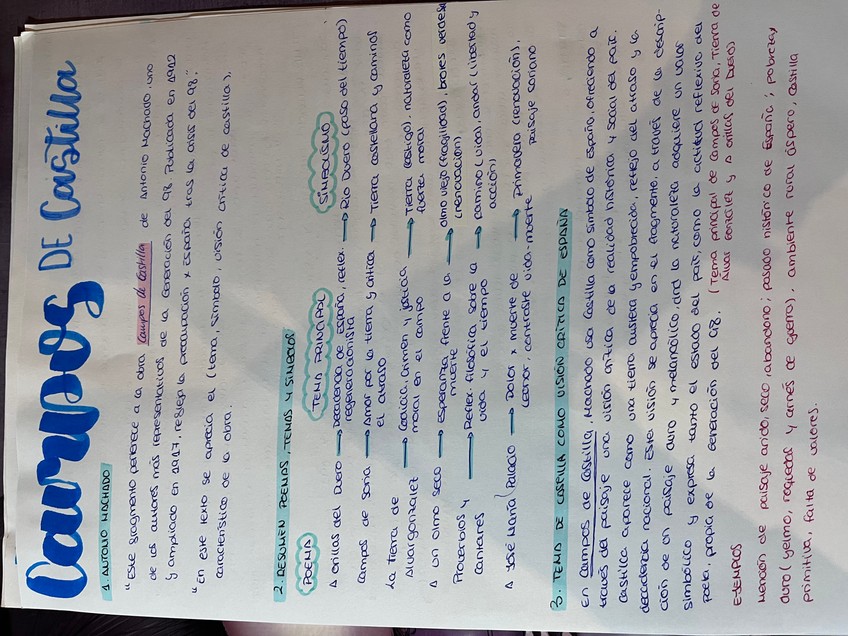 Campos DE Castilla
1. ANTONIO MACHADO
"Este fragmento pertenece a la obra Campos de Castilla de Antonio Machado, uno
de los autores más representativos de la Generación del 98. Publicada en 1912
y ampliada en 1917, refleja la preocupación x España tras la crisis del 98."
"En este texto se aprecia el (tema, símbolo, visión crítica de Castilla),
característico de la obra.
2. RESUMEN POEMAS, TEMAS Y SÍMBOLOS
POEMA TEMA PRINCIPAL SIMBOLISMO
A orillas del Duero → Decadencia de España, reflex. → Río Duero (paso del tiempo)
regeneracionista
Campos de Soria → Amor por la tierra y crítica → Tierra castellana y caminos
el atraso
La tierra de → Codicia, crimen y justicia → Tierra (castigo), naturaleza como
Alvargonzález moral en el campo fuerza moral
A un olmo seco → Esperanza frente a la → olmo viejo (fragilidad), brotes verdes
muerte (renovación)
Proverbios y → Reflex. filosófica sobre la → camino (vida), andar (libertad y
Cantares vida y el tiempo acción)
A José María Palacio → Dolor x muerte de → Primavera (renovación),
Leonor, contraste vida-muerte paisaje soriano
3. TEMA DE CASTILLA COMO VISIÓN CRÍTICA DE ESPAÑA
En Campos de Castilla, Machado usa Castilla como símbolo de España, ofreciendo a
través del paisaje una visión crítica de la realidad histórica y social del país.
Castilla aparece como una tierra austera y empobrecida, reflejo del atraso y la
decadencia nacional. Esta visión se aprecia en el fragmento a través de la descrip-
ción de un paisaje duro y melancólico, dnd la naturaleza adquiere un valor
simbólico y expresa tanto el estado del país, como la actitud reflexiva del
poeta, propia de la Generación del 98. (Tema principal de Campos de Soria, Tierra de
Alvar González y A orillas del Duero)
EJEMPLOS
Mención de paisaje árido, seco, abandono; pasado histórico de España; pobreza y
duro (yelmo, y arnés de guerra), ambiente rural áspero, Castilla
primitiva, falta de valores.